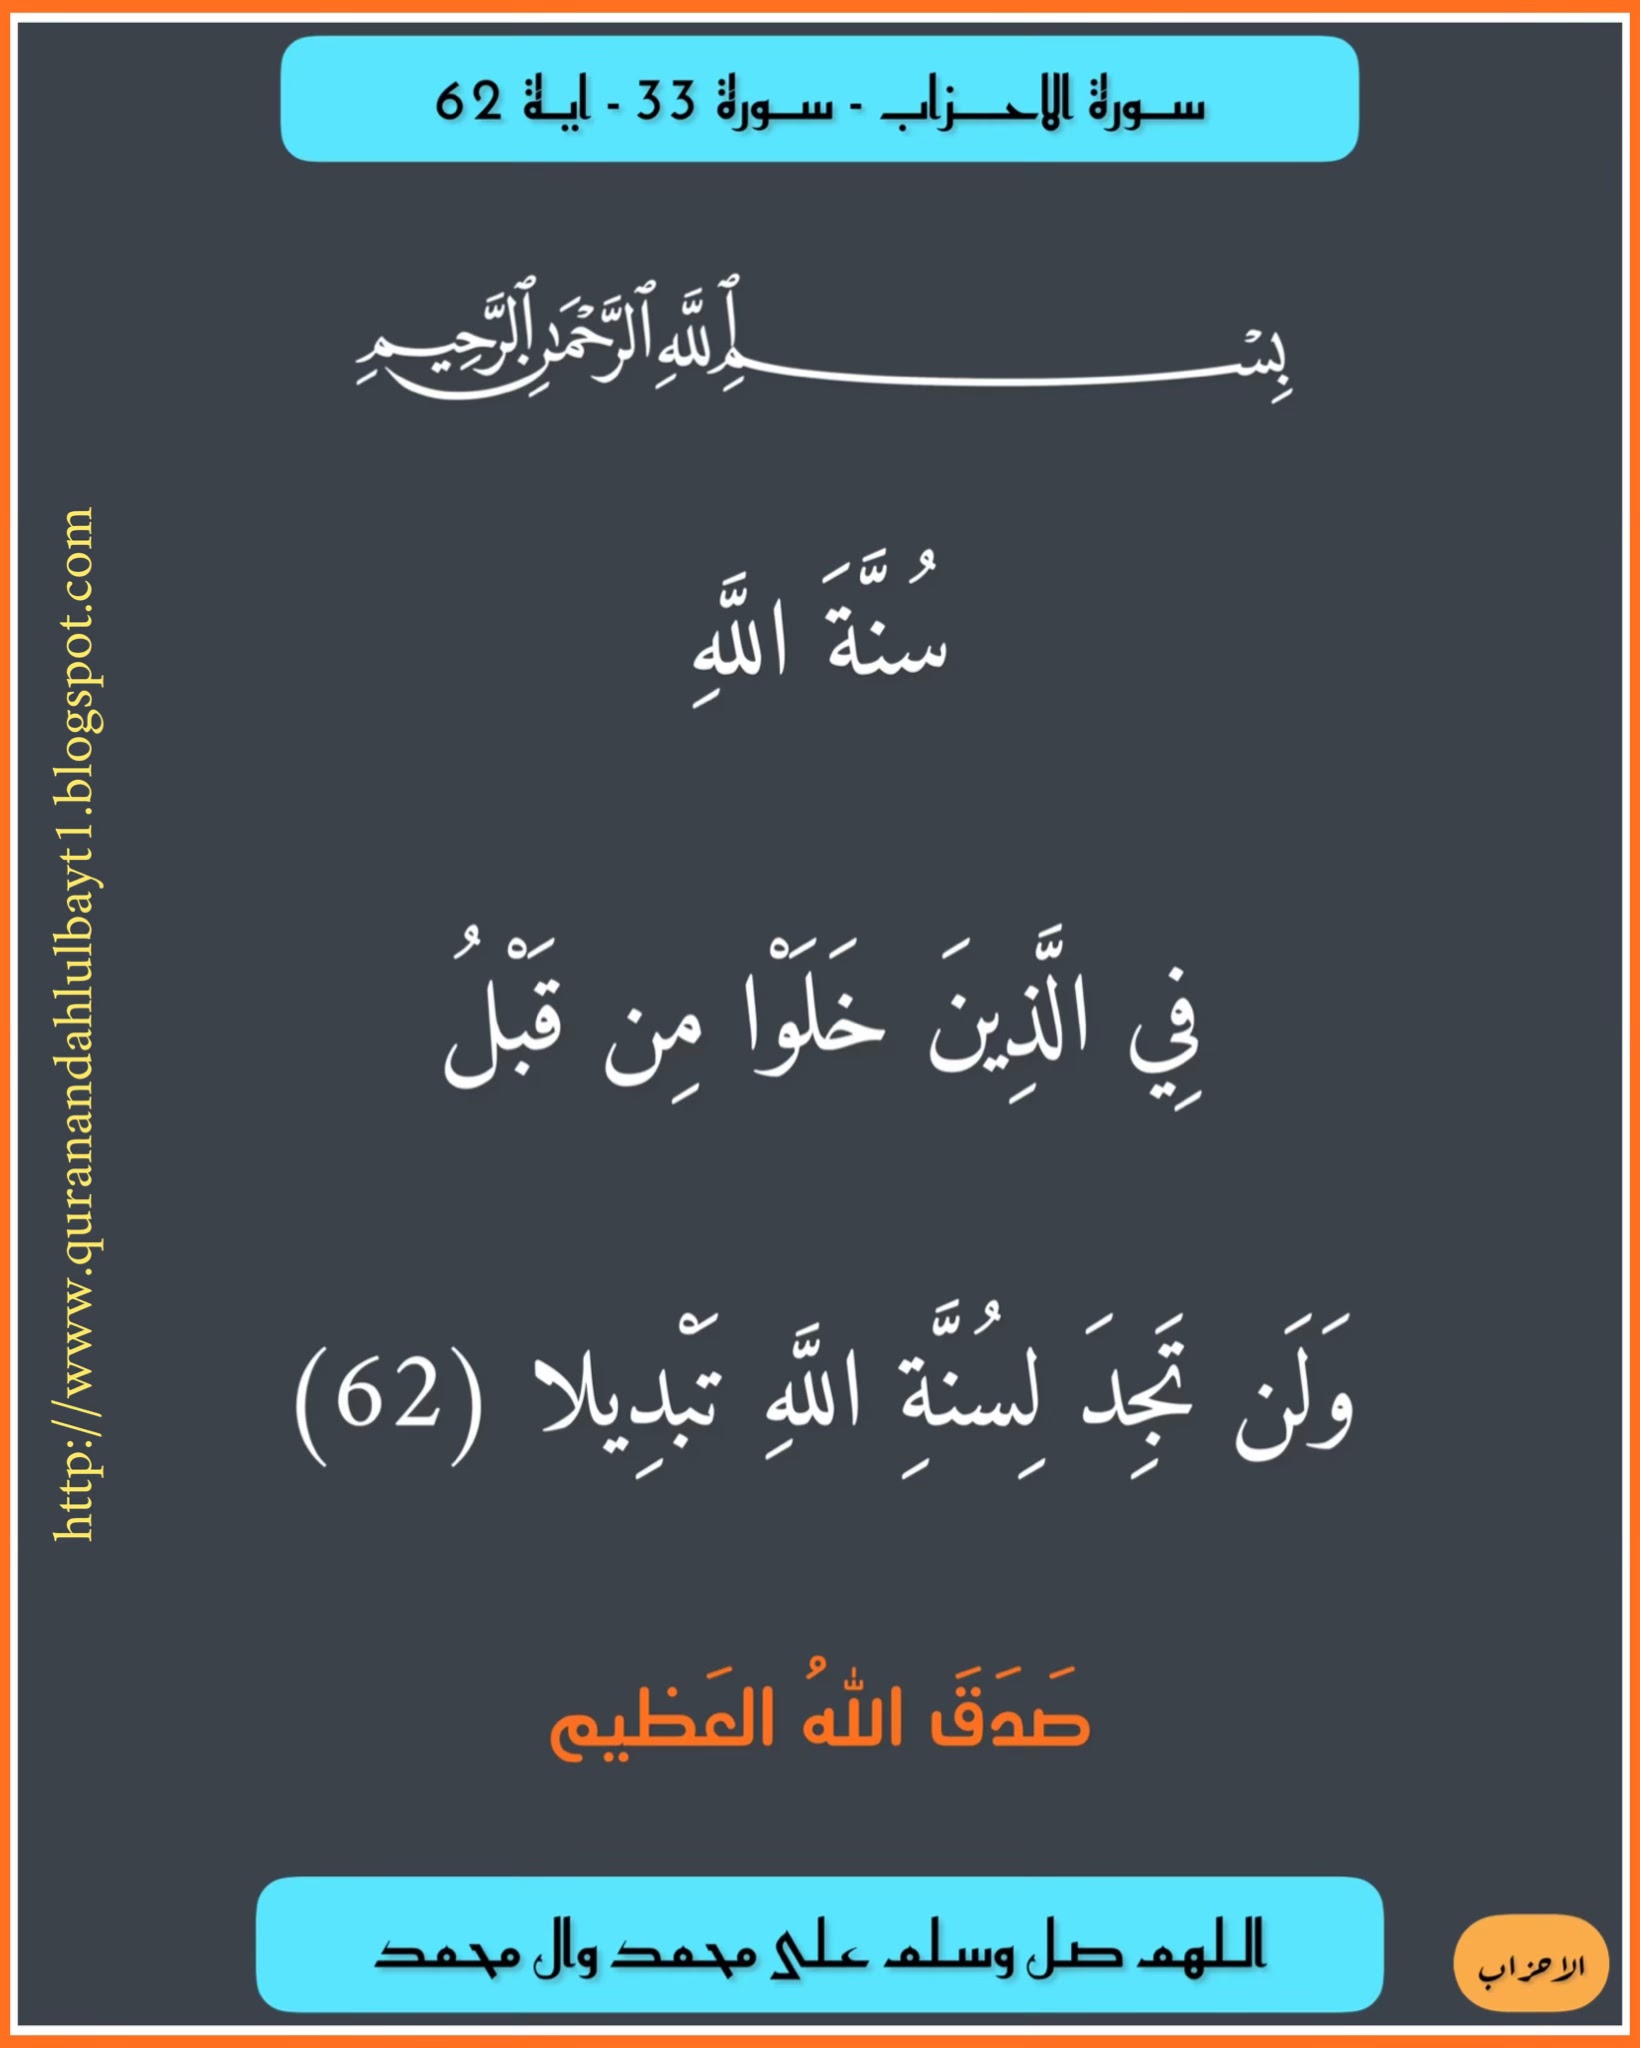 سورة الاحزاب - سورة 33 - اية 62
بِسْمِ ٱللَّهِ ٱلرَّحْمَٰنِ ٱلرَّحِيمِ
سُنَّةَ اللَّهِ
فِي الَّذِينَ خَلَوْا مِن قَبْلُ
وَلَن تَجِدَ لِسُنَّةِ اللَّهِ تَبْدِيلا (62)
صَدَقَ اللهُ العَظيم
اللهم صل وسلم على محمد وال محمد
الاحزاب
http://www.quranandahlulbayt1.blogspot.com